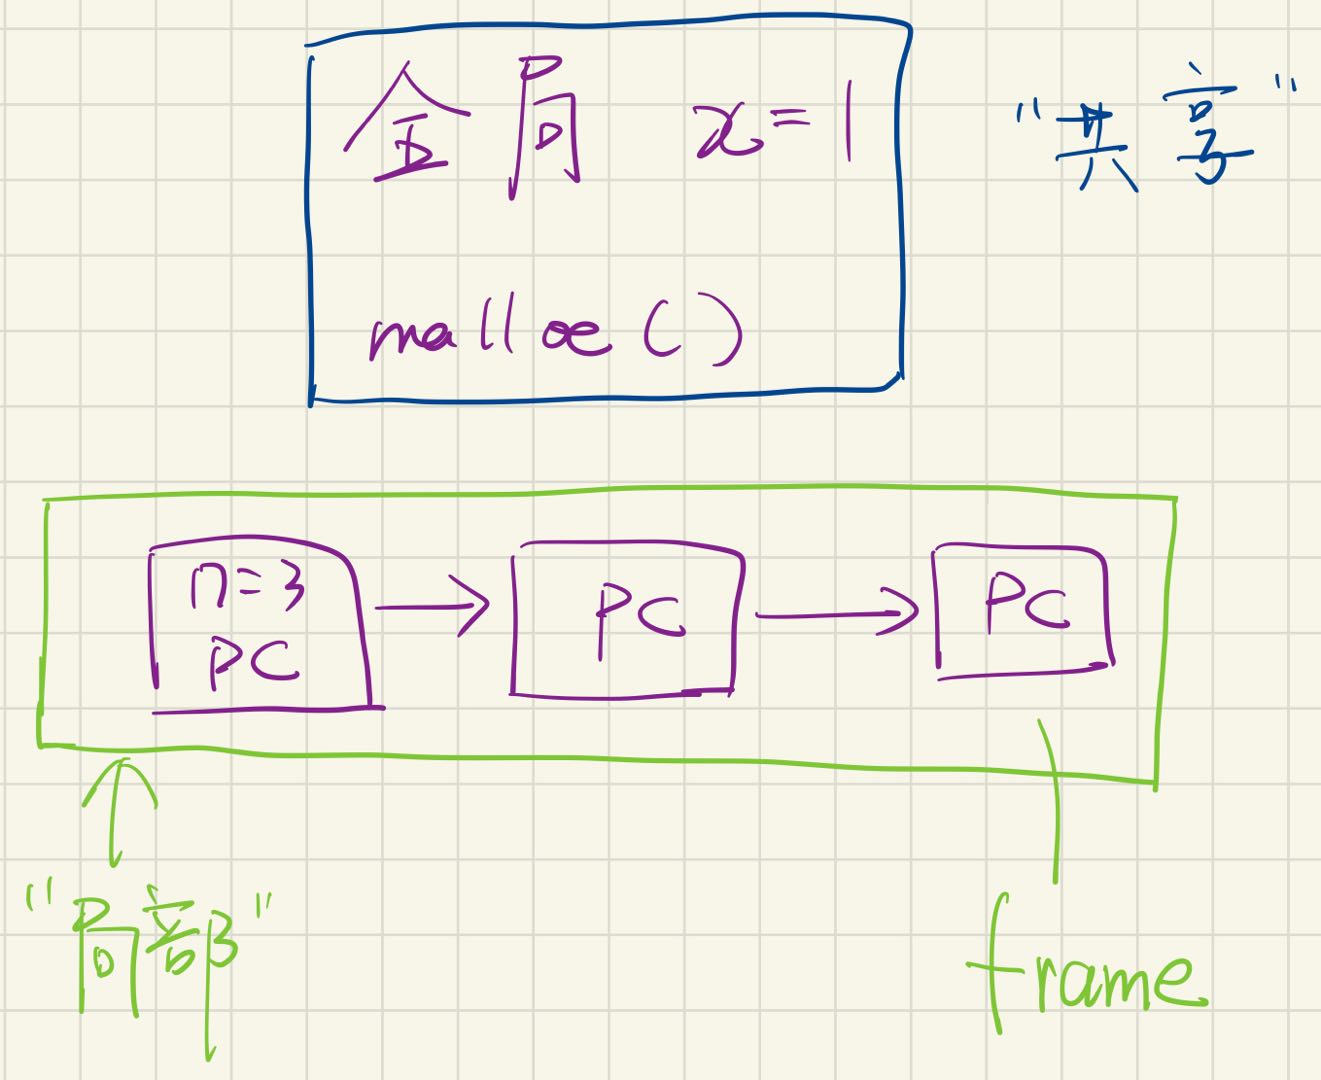 全局 x=1
"共享"
malloc()
n=3
PC
PC
PC
"局部"
frame